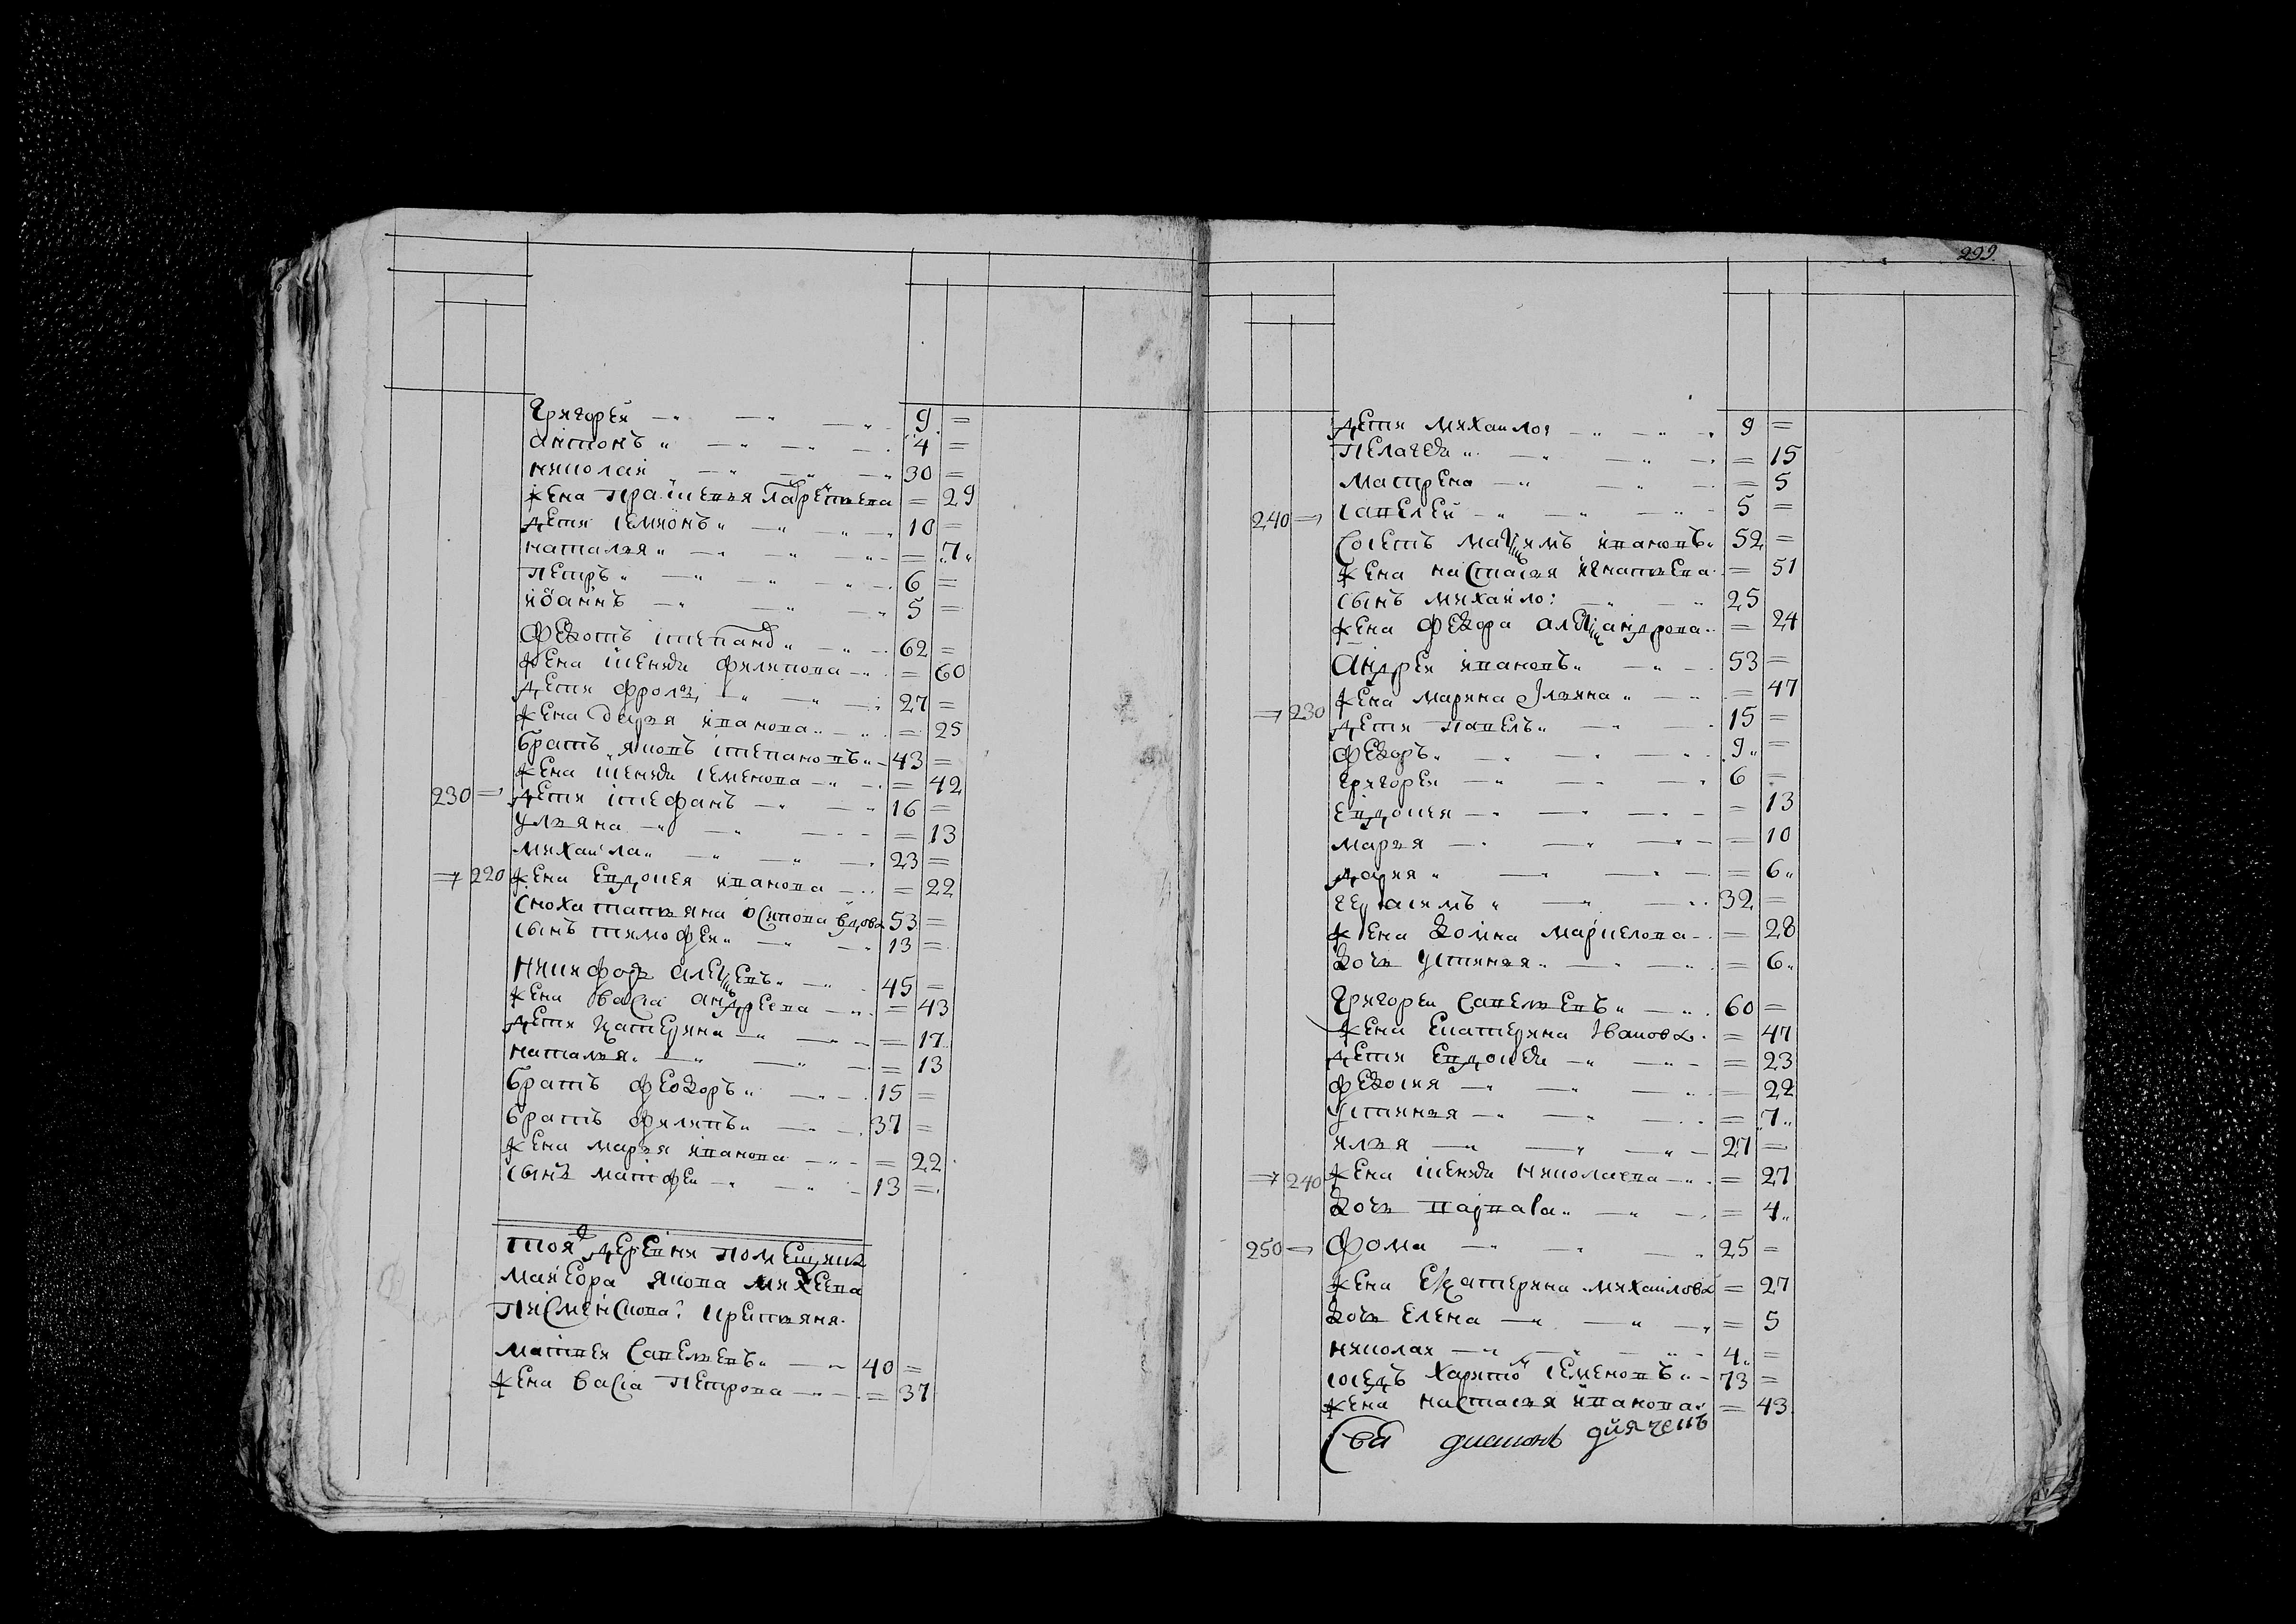 Григорей 9 =
антонъ 4 =
николай 30 =
жена прасковья Лаврентьева = 29
дети семионъ 10 =
наталья = 7
петръ 6 =
иоаннъ 5 =
Федотъ степанов 62 =
жена ксения филипова = 60
дети фролъ 27 =
жена дарья иванова = 25
братъ яковъ степановъ 43 =
жена ксения семенова = 42
230 дети стефанъ 16 =
ульяна = 13
михаила 23 =
220 жена евдокея иванова = 22
сноха татьяна осипова вдова 53 =
сынъ тимофеи 13 =
Никифоръ алексеевъ 45 =
жена васса андреева = 43
дети катерина = 17
наталья = 13
братъ феодоръ 15 =
братъ филипъ 37 =
жена марья иванова = 22
сынъ матфеи 13 =
тоя деревни помещика
маиеора якова михеева
писменскова крестьяня
матвеи савельевъ 40 =
жена васса петрова = 37
299
дети михаило 9 =
пелагея = 15
матрена = 5
240 савелеи 5 =
соседъ максимъ ивановъ 52 =
жена настасья игнатьева = 51
сынъ михаило 25
жена федора александрова = 24
андреи ивановъ 53 =
жена марина ильина = 47
230 дети павелъ 15 =
федоръ 9 =
григореи 6 =
евдокия = 13
марья = 10
дария = 6
герасимъ 32 =
жена домна маркелова = 28
дочь устинья = 6
Григореи савельевъ 60 =
жена екатерина Иванова = 47
дети евдокея = 23
федосия = 22
устинья = 7
илья 27 =
240 жена ксения николаева = 27
дочь варвара = 4
250 фома 25 =
жена екатерина михаилова = 27
дочь елена = 5
николаи 4 =
соседъ харитон семеновъ 73 =
жена настасья иванова = 43